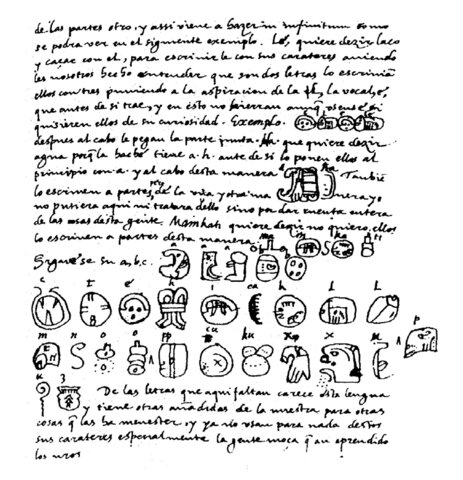 de las partes otro, y assi viene a hazer in infinitum como
se podra ver en el siguiente exemplo. Lé, quiere dezir laço
y caçar con el, para escrivirle con sus carateres aviendo
les nosotros hecho entender que son dos letras lo escrivian
ellos con tres puniendo a la aspiracion de la l, la vocal, é,
que antes de si trae, y en esto no hierran aunq̃ usense, si
quisieren ellos de su curiosidad. Exemplo.
despues al cabo le pegan la parte junta. Ha que quiere dezir
agua porq̃ la hache tiene a. h. ante de si lo ponen ellos al
principio con a. y al cabo desta manera Tambiē
ha
lo escriven a partes, de la una y otra ma nera yo
no pusiera aqui ni tratara dello sino por dar cuenta entera
de las cosas desta gente. Mainkati quiere dezir no quiero, ellos
lo escriven a partes desta manera ma i n ka ti
Siguese su a, b, c. a a a b b
c t e h i ca k l l
m n o o pp cu ku x p
u z
De las letras que aqui faltan carece esta lengua
y tiene otras añadidas de la nuestra para otras
cosas q̃ las ha menester, y ya no usan para nada destos
sus carateres especialmente la gente moça q̃ an aprendido
los nr̃os